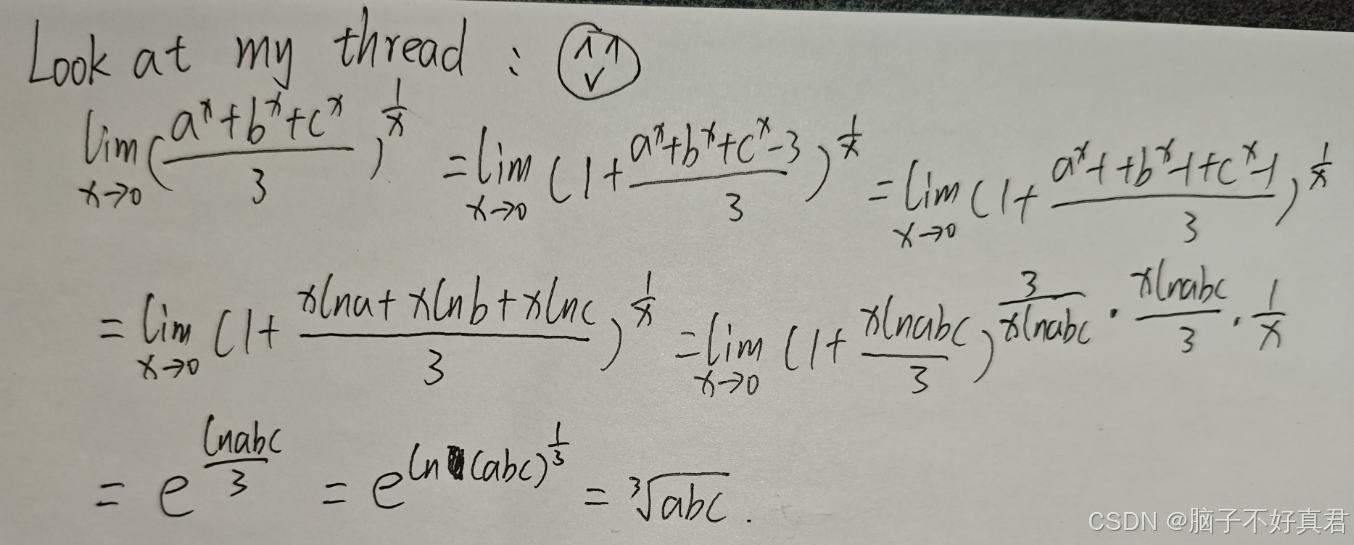 Look at my thread :
lim x→0 (a^x+b^x+c^x / 3)^(1/x) = lim x→0 (1 + a^x+b^x+c^x-3 / 3)^(1/x) = lim x→0 (1 + a^x-1+b^x-1+c^x-1 / 3)^(1/x)
= lim x→0 (1 + xlna+xlnb+xlnc / 3)^(1/x) = lim x→0 (1 + xlnabc / 3)^(3/xlnabc · xlnabc/3 · 1/x)
= e^(lnabc/3) = e^(ln(abc)^(1/3)) = ³√abc.
CSDN @脑子不好真君